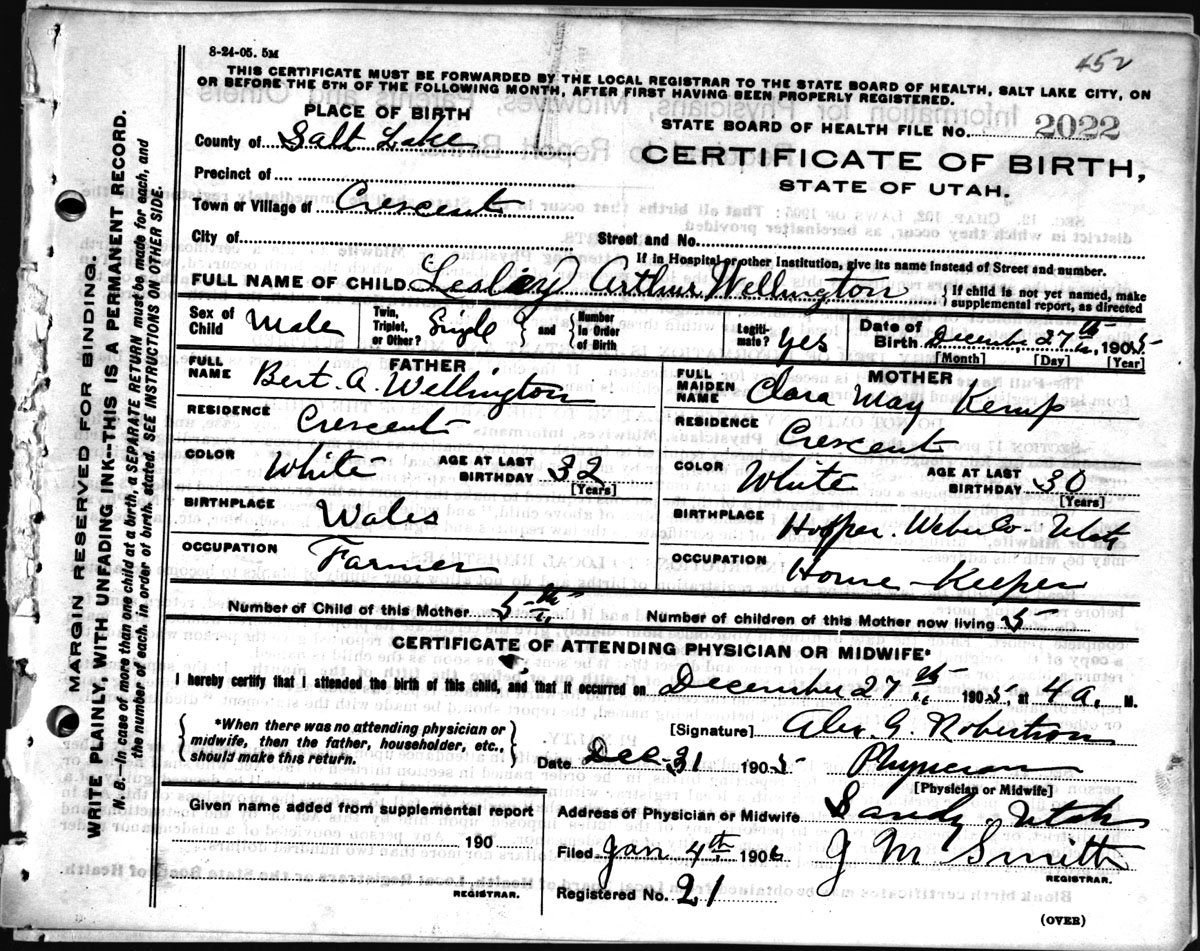 8-24-05. 5M
452
THIS CERTIFICATE MUST BE FORWARDED BY THE LOCAL REGISTRAR TO THE STATE BOARD OF HEALTH, SALT LAKE CITY, ON
OR BEFORE THE 5TH OF THE FOLLOWING MONTH, AFTER FIRST HAVING BEEN PROPERLY REGISTERED.
PLACE OF BIRTH
STATE BOARD OF HEALTH FILE No. 2022
County of Salt Lake
CERTIFICATE OF BIRTH,
STATE OF UTAH.
Precinct of
Town or Village of Crescent
City of Street and No.
If in Hospital or other Institution, give its name instead of Street and number.
FULL NAME OF CHILD Lesley Arthur Wellington { If child is not yet named, make supplemental report, as directed
Sex of Child Male Twin, Triplet, or Other? Single } and { Number in Order of Birth Legiti-mate? Yes Date of Birth December 27th, 1905
[Month] [Day] [Year]
FATHER
FULL NAME Bert. A. Wellington
RESIDENCE Crescent
COLOR White AGE AT LAST BIRTHDAY 32
[Years]
BIRTHPLACE Wales
OCCUPATION Farmer
MOTHER
FULL MAIDEN NAME Clara May Kemp
RESIDENCE Crescent
COLOR White AGE AT LAST BIRTHDAY 30
[Years]
BIRTHPLACE Hopper. Weber Co Utah
OCCUPATION Home-Keeper
Number of Child of this Mother 5th Number of children of this Mother now living 5
CERTIFICATE OF ATTENDING PHYSICIAN OR MIDWIFE*
I hereby certify that I attended the birth of this child, and that it occurred on December 27th, 1905, at 4 a, M.
{ *When there was no attending physician or midwife, then the father, householder, etc., should make this return. }
[Signature] Alex. G. Robertson
Date Dec-31 1905 Physician
[Physician or Midwife]
Given name added from supplemental report
190
REGISTRAR.
Address of Physician or Midwife Sandy Utah
Filed Jan 4th, 1906 J M Smith
REGISTRAR.
Registered No. 21
(OVER)
MARGIN RESERVED FOR BINDING.
WRITE PLAINLY, WITH UNFADING INK---THIS IS A PERMANENT RECORD.
N. B.—In case of more than one child at a birth, a SEPARATE RETURN must be made for each, and
the number of each, in order of birth, stated. SEE INSTRUCTIONS ON OTHER SIDE.